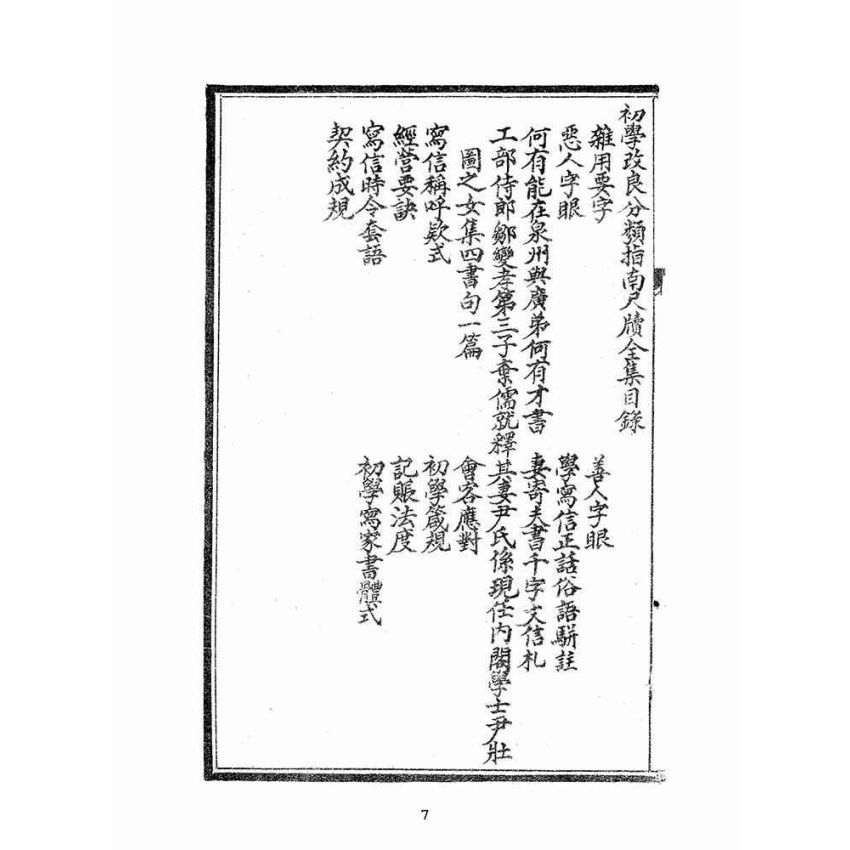 初學改良分類指南尺牘全集目錄
雜用要字 善人字眼
惡人字眼 學寫信正話俗語駢註
何有能在泉州與廣弟何有才書 妻寄夫書千字文信札
工部侍郎鄒變孝第三子棄儒就釋其妻尹氏係現任內閣學士尹壯
圖之女集四書句一篇 會客應對
寫信稱呼欵式 初學箴規
經營要訣 記賬法度
寫信時令套語 初學寫家書體式
契約成規
7